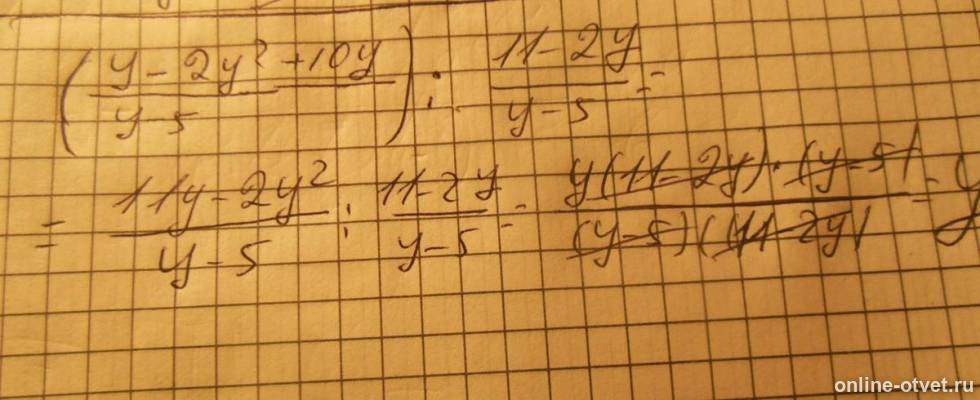 (y-2y²+10y / y-5) : 11-2y / y-5 =
= 11y-2y² / y-5 : 11-2y / y-5 = y(11-2y)·(y-5) / (y-5)(11-2y) = y
online-otvet.ru